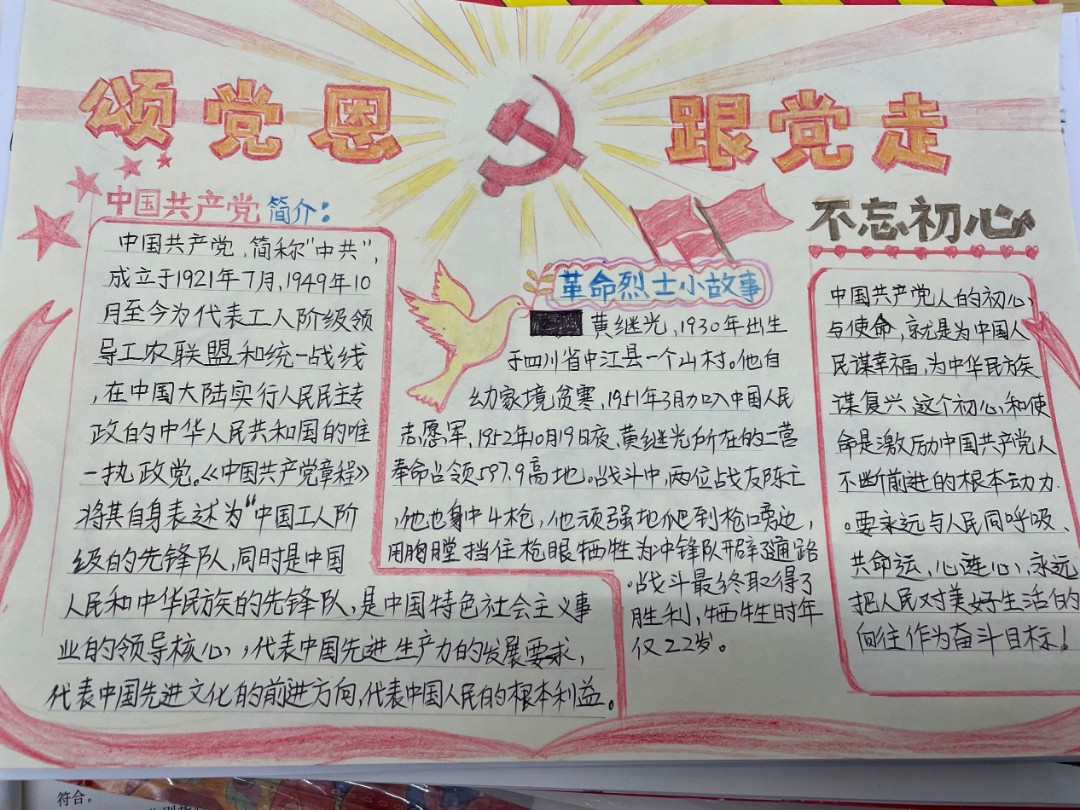 颂党恩 跟党走
中国共产党简介：
中国共产党，简称"中共"，
成立于1921年7月，1949年10
月至今为代表工人阶级领
导工农联盟和统一战线
，在中国大陆实行人民民主专
政的中华人民共和国的唯
一执政党。《中国共产党章程》
将其自身表述为"中国工人阶
级的先锋队，同时是中国
人民和中华民族的先锋队，是中国特色社会主义事
业的领导核心，代表中国先进生产力的发展要求，
代表中国先进文化的前进方向，代表中国人民的根本利益。
革命烈士小故事
黄继光，1930年出生
于四川省中江县一个山村。他自
幼家境贫寒，1951年3月加入中国人民
志愿军，1952年10月19日夜，黄继光所在的二营
奉命占领597.9高地。战斗中，两位战友阵亡
，他也身中4枪，他顽强地爬到枪口旁边，
用胸膛挡住枪眼牺牲为冲锋队开辟通路
。战斗最终取得了
胜利，牺牲时年
仅22岁。
不忘初心
中国共产党人的初心
与使命，就是为中国人
民谋幸福，为中华民族
谋复兴。这个初心和使
命是激励中国共产党人
不断前进的根本动力
。要永远与人民同呼吸、
共命运，心连心，永远
把人民对美好生活的
向往作为奋斗目标！
符合。